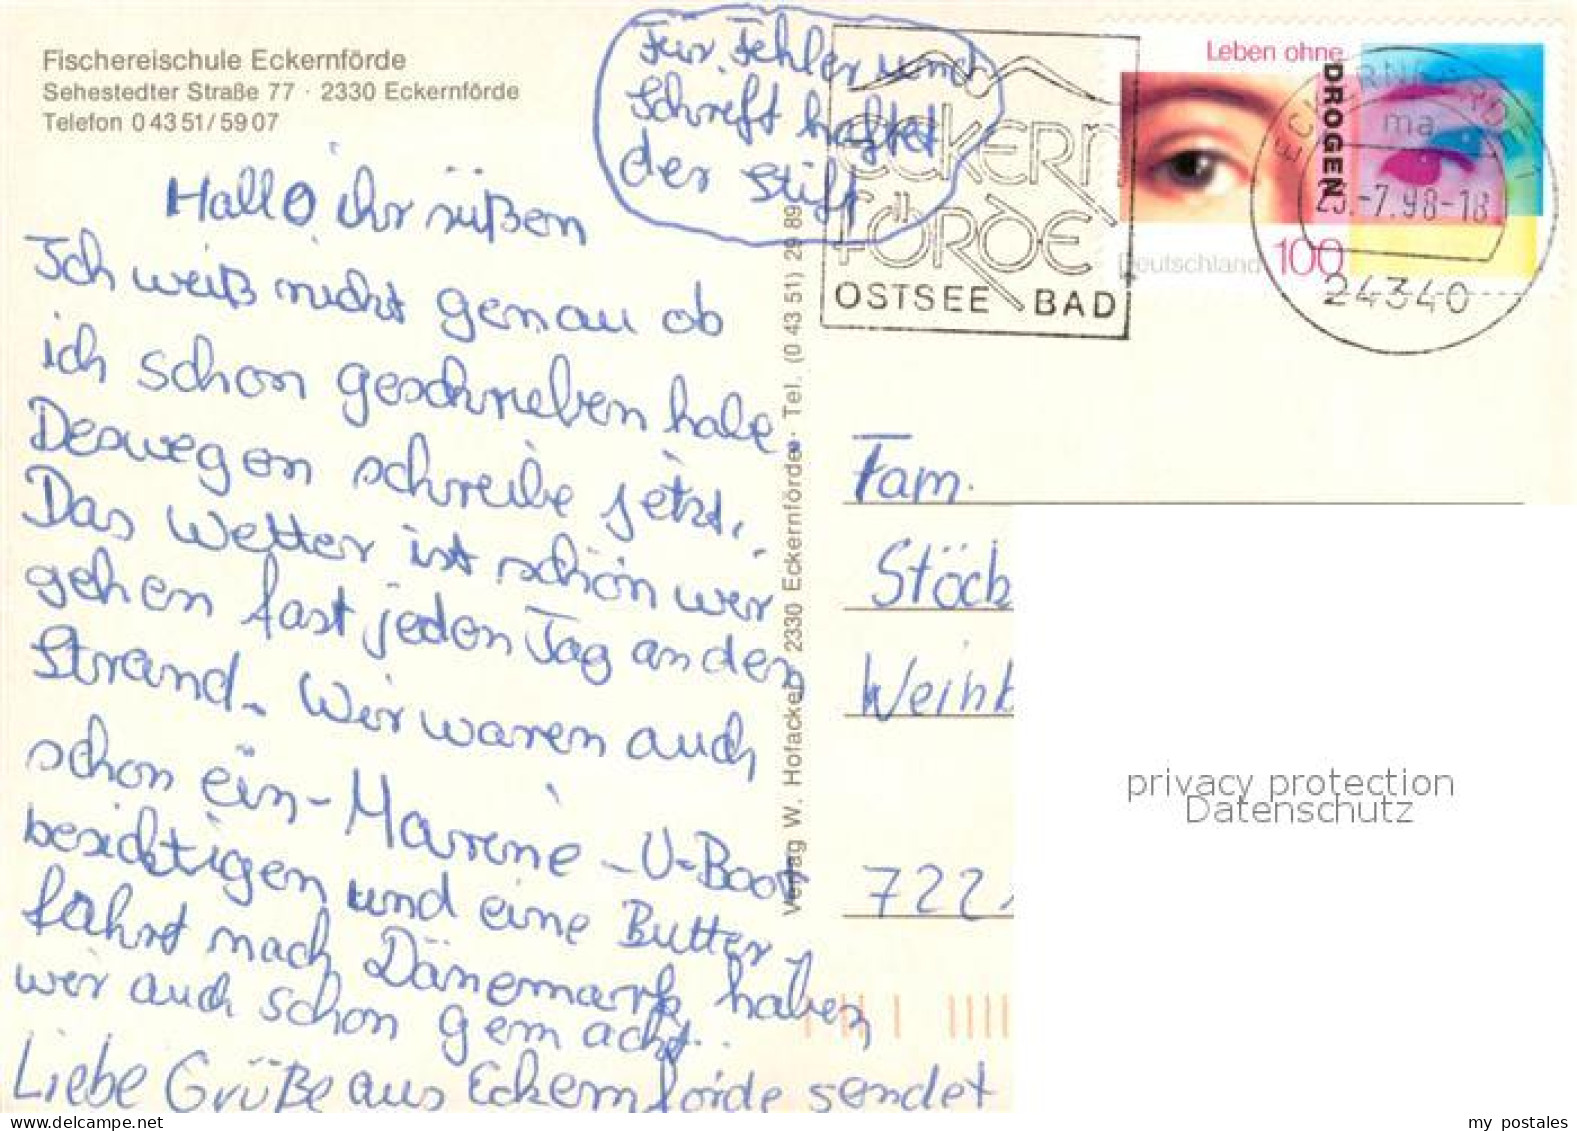 Fischereischule Eckernförde
Sehestedter Straße 77 · 2330 Eckernförde
Telefon 0 43 51/59 07
Für Fehler und
Schrift haftet
der Stift
Hallo ihr süßen
Ich weiß nicht genau ob
ich schon geschrieben habe.
Deswegen schreibe jetzt.
Das Wetter ist schön wir
gehen fast jeden Tag an den
Strand. Wir waren auch
schon ein-Marine-U-Boot
besichtigen und eine Butter-
fahrt nach Dänemark haben
wir auch schon gemacht..
Liebe Grüße aus Eckernförde sendet
Verlag W. Hofacker, 2330 Eckernförde · Tel. (0 43 51) 29 89
ECKERN
FÖRDE
OSTSEE BAD
Leben ohne
DROGEN
Deutschland 100
ECKERNFÖRDE 1
ma
23.-7.98-18
24340
Fam.
Stöck
Weink
722
privacy protection
Datenschutz
delcampe.net
my postales